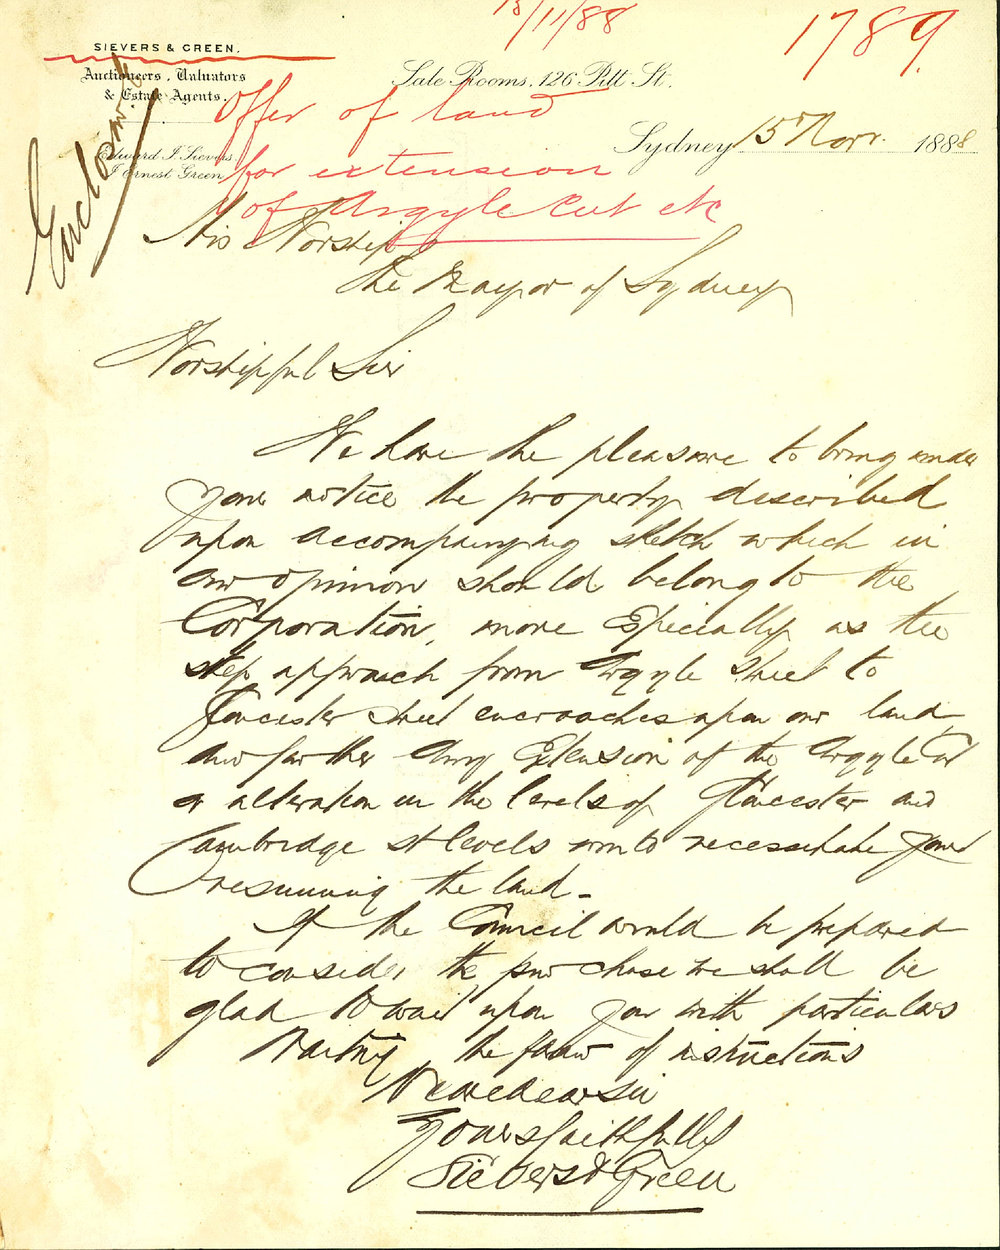 15/11/88
1789.
SIEVERS & GREEN.
Auctioneers, Valuators
& Estate Agents.
Sale Rooms, 126 Pitt St.
Offer of land
for extension
of Argyle Cut etc
Edward J. Sievers.
J. Ernest Green.
Sydney 15 Novr. 1888
His Worship
The Mayor of Sydney
Worshipful Sir
We have the pleasure to bring under
your notice the property described
upon accompanying sketch which in
our opinion should belong to the
Corporation, more Especially as the
step approach from Argyle Street to
Gloucester Street encroaches upon our land,
and further Any Extension of the Argyle Cut
or alteration in the levels of Gloucester and
Cambridge St levels to necessitate your
resuming the land -
If the Council would be prepared
to consider the purchase we shall be
glad to wait upon you with particulars
Waiting the favor of instructions
We are dear sir
Yours faithfully
Sievers & Green